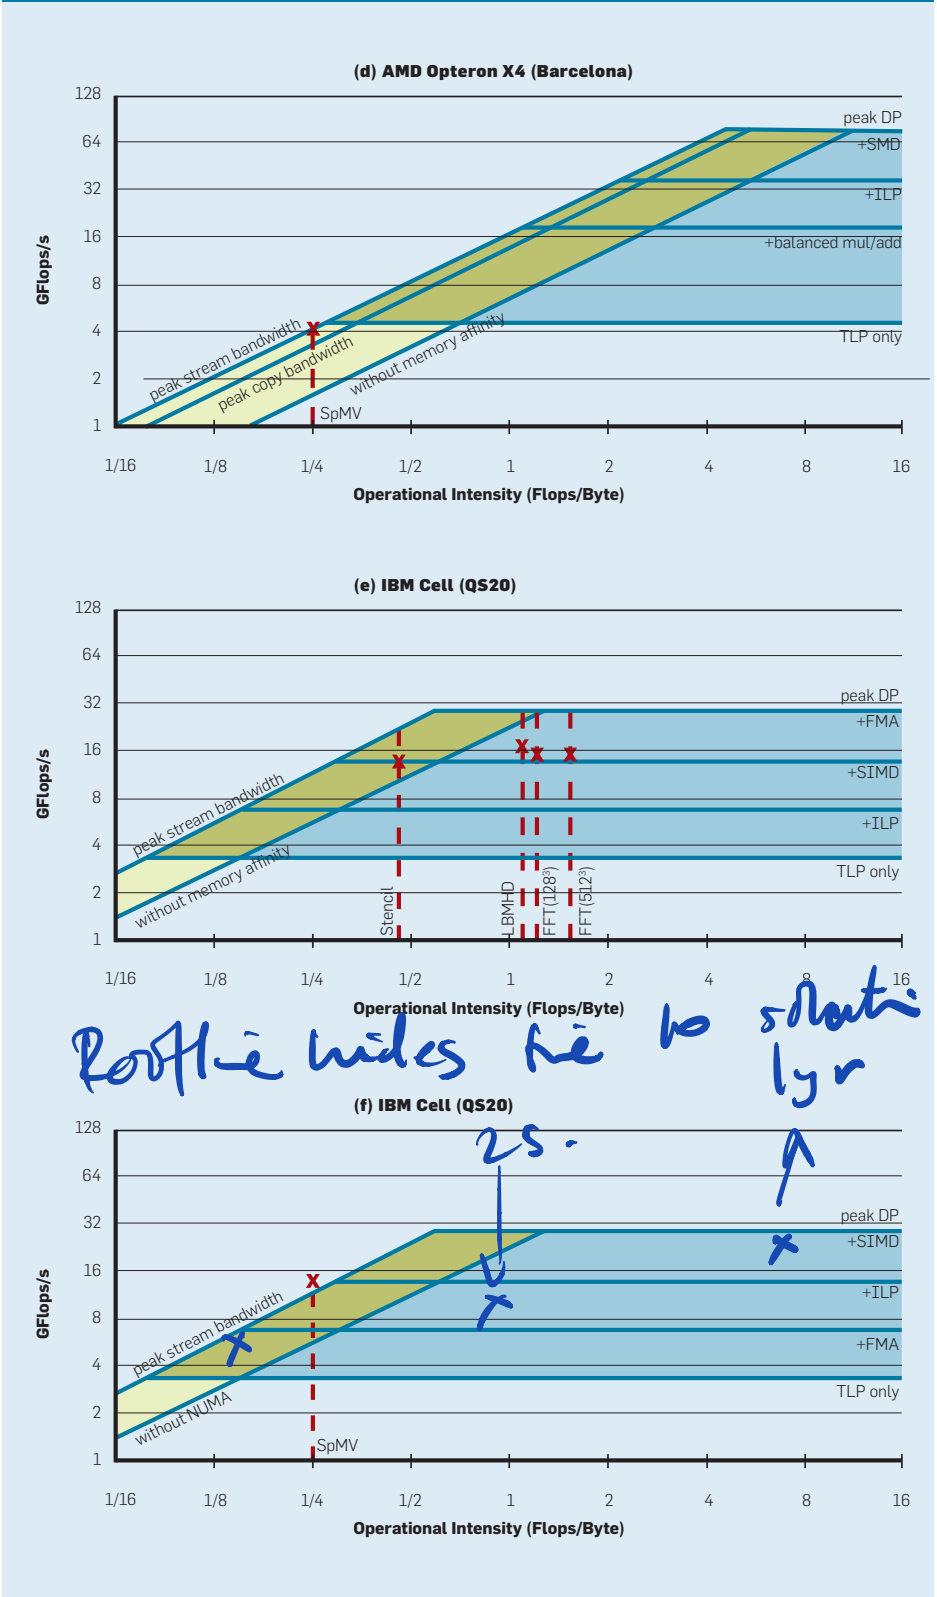 (d) AMD Opteron X4 (Barcelona)
128
64
32
16
8
4
2
1
GFlops/s
peak DP
+SMD
+ILP
+balanced mul/add
TLP only
peak stream bandwidth
peak copy bandwidth
without memory affinity
X
SpMV
1/16 1/8 1/4 1/2 1 2 4 8 16
Operational Intensity (Flops/Byte)
(e) IBM Cell (QS20)
128
64
32
16
8
4
2
1
GFlops/s
peak DP
+FMA
+SIMD
+ILP
TLP only
peak stream bandwidth
without memory affinity
X X X X
Stencil
LBMHD
FFT(128³)
FFT(512³)
1/16 1/8 1/4 1/2 1 2 4 8 16
Operational Intensity (Flops/Byte)
Roofline hides to
(f) IBM Cell (QS20)
128
64
32
16
8
4
2
1
GFlops/s
peak DP
+SIMD
+ILP
+FMA
TLP only
peak stream bandwidth
without NUMA
X
SpMV
1/16 1/8 1/4 1/2 1 2 4 8 16
Operational Intensity (Flops/Byte)